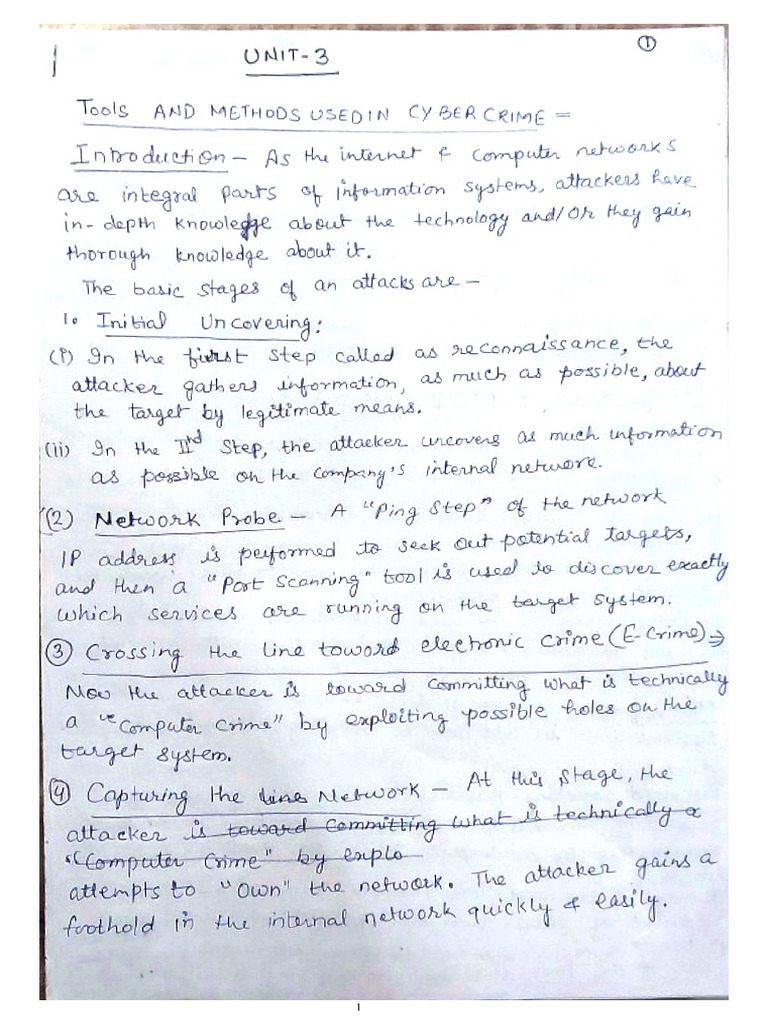 ①
UNIT-3
Tools AND METHODS USED IN CYBER CRIME =
Introduction - As the internet & computer networks
are integral parts of information systems, attackers have
in-depth knowledge about the technology and/or they gain
thorough knowledge about it.
The basic stages of an attacks are -
1. Initial Uncovering:
(i) In the first step called as reconnaissance, the
attacker gathers information, as much as possible, about
the target by legitimate means.
(ii) In the IInd Step, the attacker uncovers as much information
as possible on the company's internal network.
(2) Network Probe - A "Ping Step" of the network
IP address is performed to seek out potential targets,
and then a "Port Scanning" tool is used to discover exactly
which services are running on the target system.
③ Crossing the line toward electronic crime (E-Crime) ⇒
Now the attacker is toward committing what is technically
a "computer crime" by exploiting possible holes on the
target system.
④ Capturing the line Network - At this stage, the
attacker is toward committing what is technically a
"Computer Crime" by explo
attempts to "own" the network. The attacker gains a
foothold in the internal network quickly & easily.
1